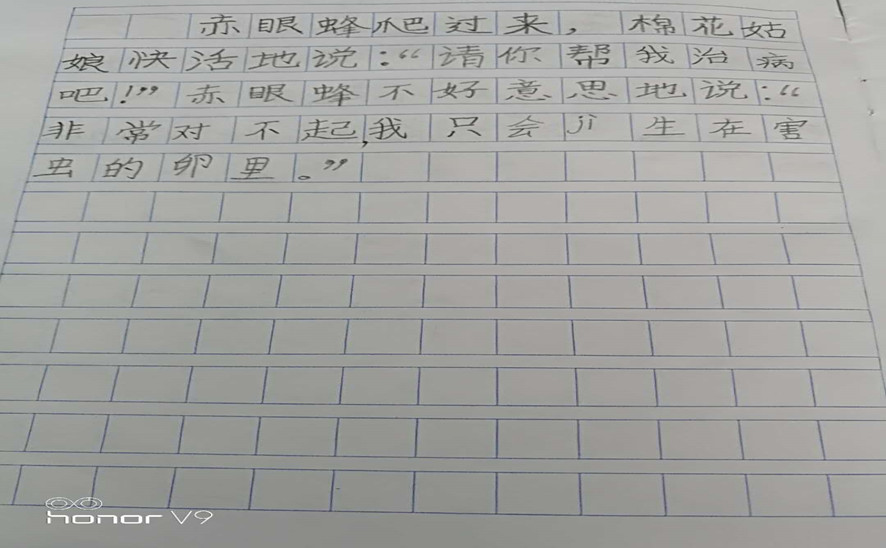 赤眼蜂爬过来，棉花姑
娘快活地说：“请你帮我治病
吧！”赤眼蜂不好意思地说：“
非常对不起，我只会jì生在害
虫的卵里。”
honor V9